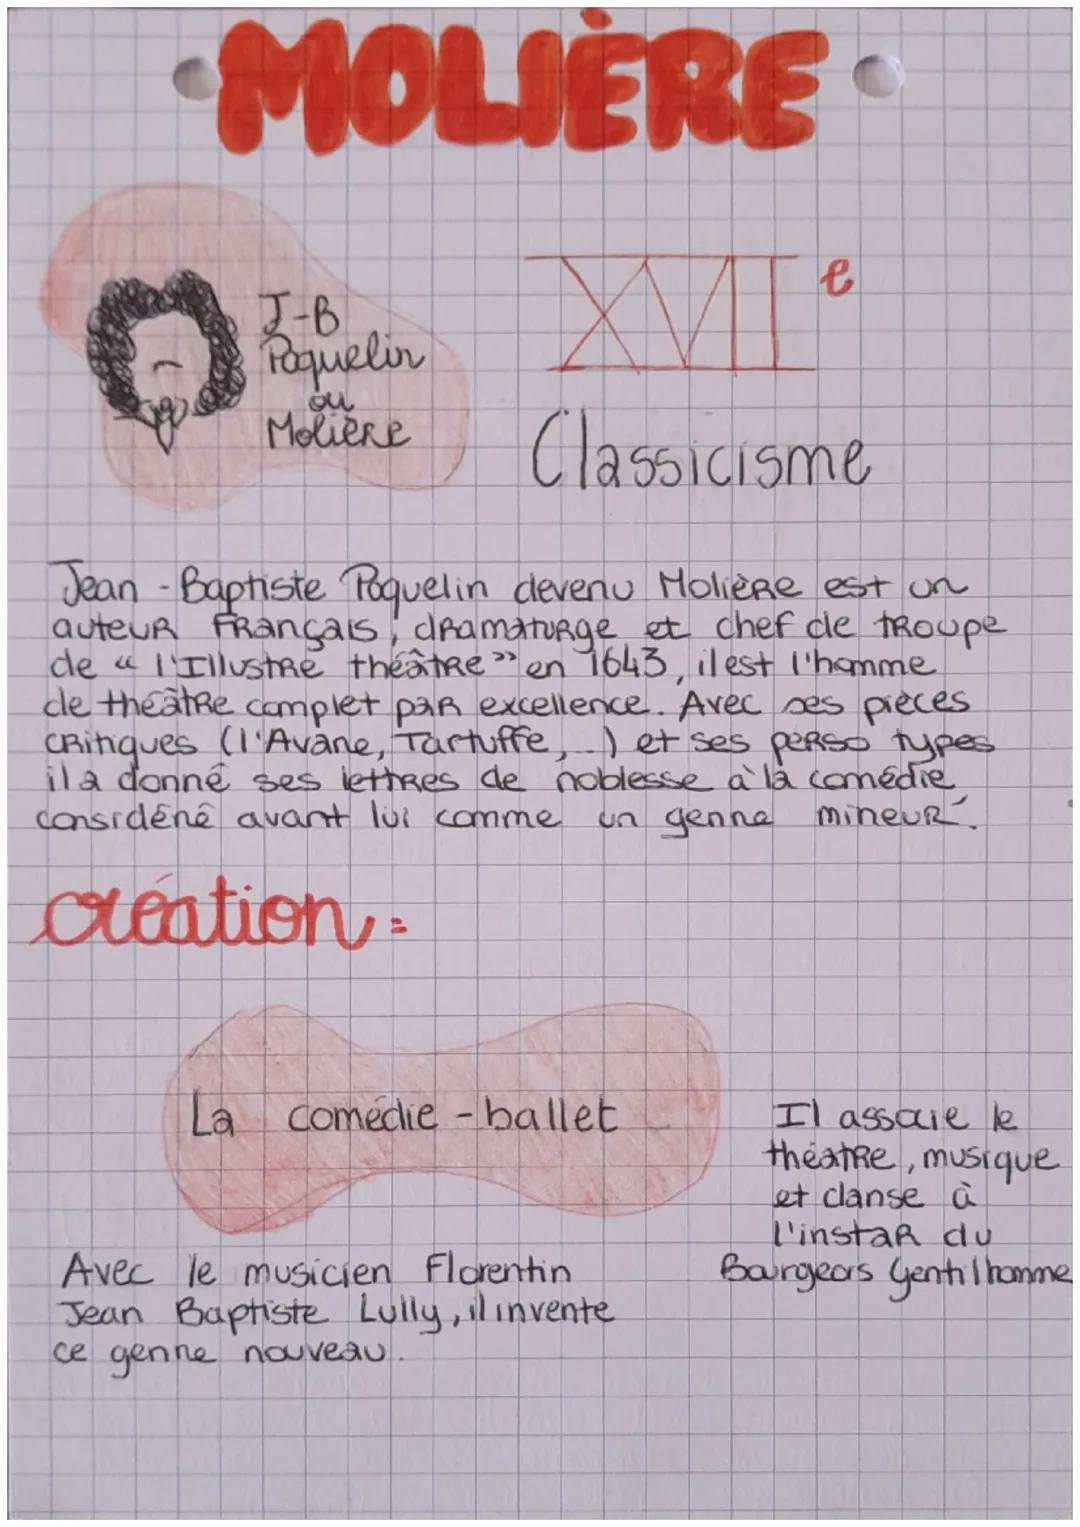 MOLIÈRE
J-B
Poquelin
ou
Molière
XVII e
Classicisme
Jean-Baptiste Poquelin devenu Molière est un
auteur Français, dramaturge et chef de troupe
de "l'Illustre théâtre" en 1643, il est l'homme
de théâtre complet par excellence. Avec ses pièces
critiques (l'Avare, Tartuffe,...) et ses perso types
il a donné ses lettres de noblesse à la comédie,
considéré avant lui comme un genre mineur.
création:
La comédie-ballet
Il associe le
théatre, musique
et danse à
l'instar du
Bourgeois Gentilhomme
Avec le musicien Florentin
Jean Baptiste Lully, il invente
ce genre nouveau.